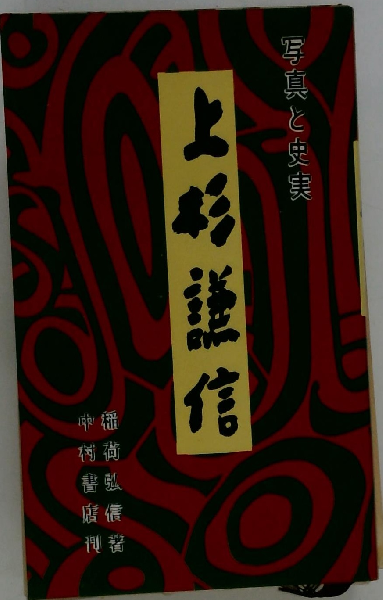 写真と史実
上杉謙信
稲荷弘信著
中村書店刊